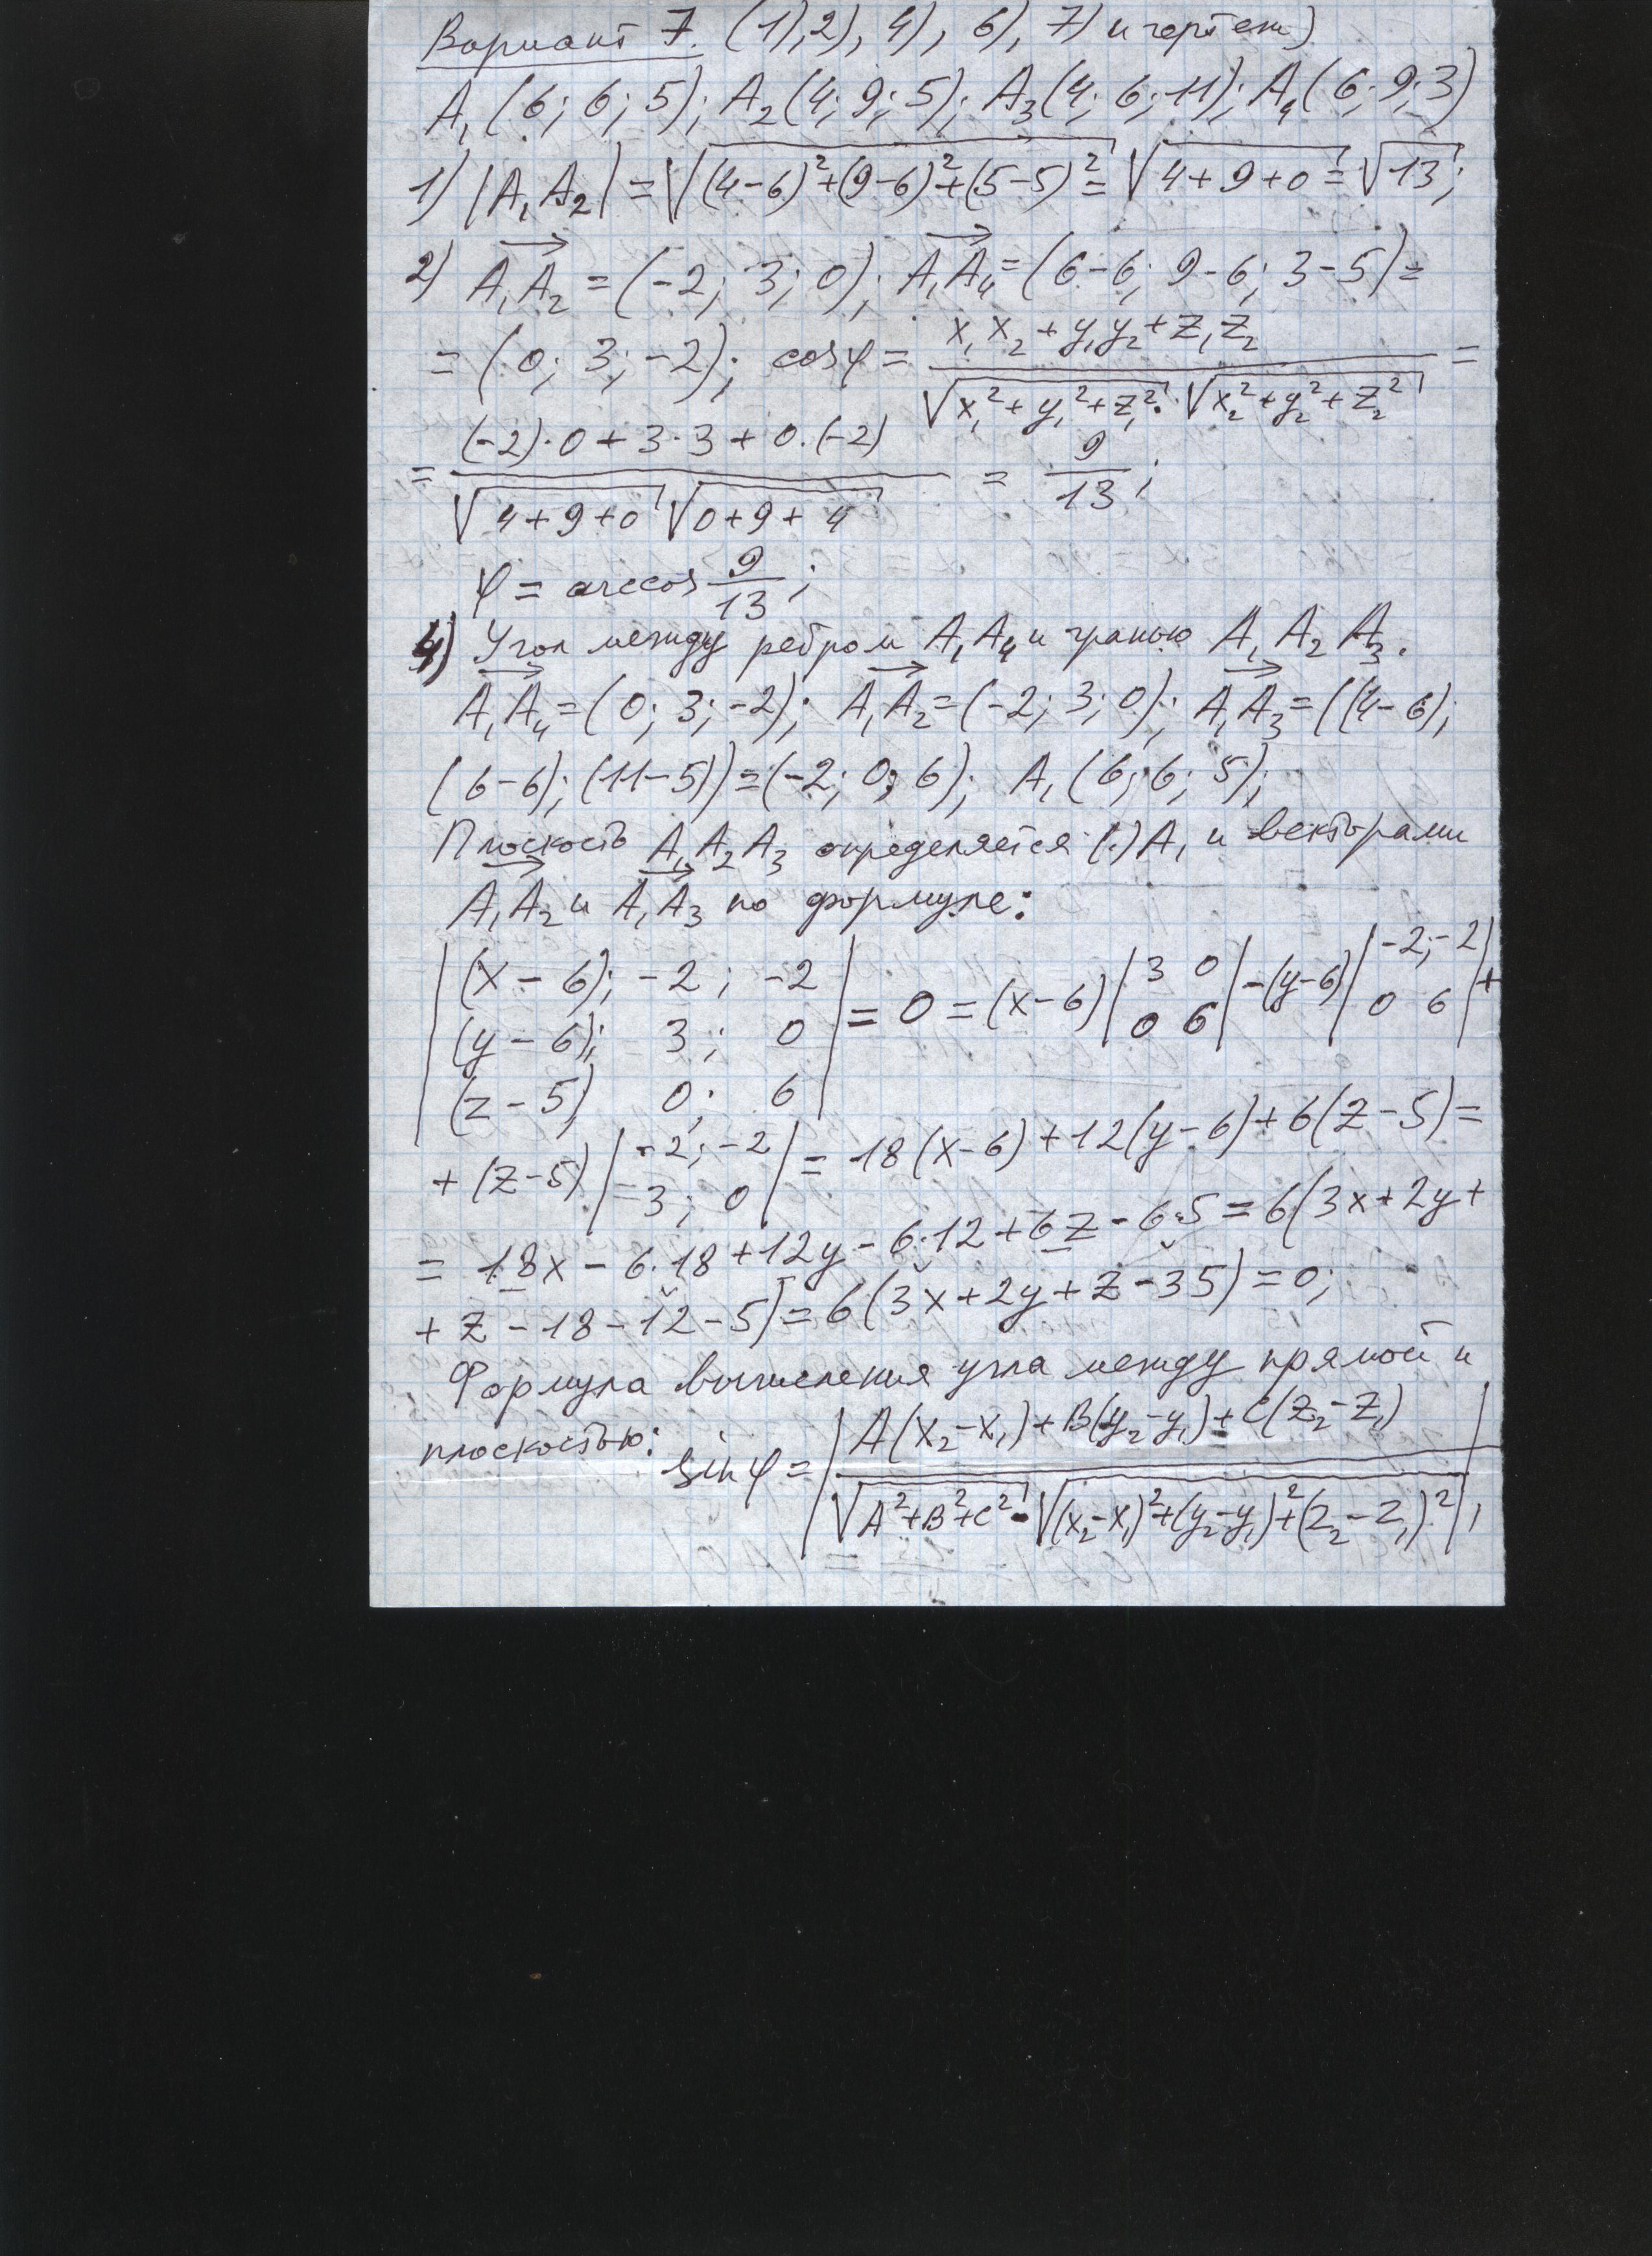 Вариант 7. (1), 2), 4), 6), 7) и чертеж)
A₁(6; 6; 5); A₂(4; 9; 5); A₃(4; 6; 11); A₄(6; 9; 3)
1) |A₁A₂| = √((4-6)²+(9-6)²+(5-5)²) = √(4+9+0) = √13;
2) A₁A₂ = (-2; 3; 0); A₁A₄ = (6-6; 9-6; 3-5) =
= (0; 3; -2); cosφ = (x₁x₂ + y₁y₂ + z₁z₂) / (√(x₁²+y₁²+z₁²) · √(x₂²+y₂²+z₂²)) =
= ((-2)·0 + 3·3 + 0·(-2)) / (√(4+9+0) √(0+9+4)) = 9/13;
φ = arccos 9/13;
4) Угол между ребром A₁A₄ и гранью A₁A₂A₃.
A₁A₄ = (0; 3; -2); A₁A₂ = (-2; 3; 0); A₁A₃ = ((4-6);
(6-6); (11-5)) = (-2; 0; 6); A₁(6; 6; 5);
Плоскость A₁A₂A₃ определяется (.) A₁ и векторами
A₁A₂ и A₁A₃ по формуле:
|(x-6); -2; -2|
|(y-6); 3; 0| = 0 = (x-6) |3 0; 0 6| -(y-6) |-2; -2; 0 6| +
|(z-5) 0; 6|
+ (z-5) |-2; -2; 3; 0| = 18(x-6) + 12(y-6) + 6(z-5) =
= 18x - 6·18 + 12y - 6·12 + 6z - 6·5 = 6(3x + 2y +
+ z - 18 - 12 - 5) = 6(3x + 2y + z - 35) = 0;
Формула вычисления угла между прямой и
плоскостью: sinφ = |(A(x₂-x₁) + B(y₂-y₁) + C(z₂-z₁)) / (√(A²+B²+C²) · √((x₂-x₁)²+(y₂-y₁)²+(z₂-z₁)²))|;